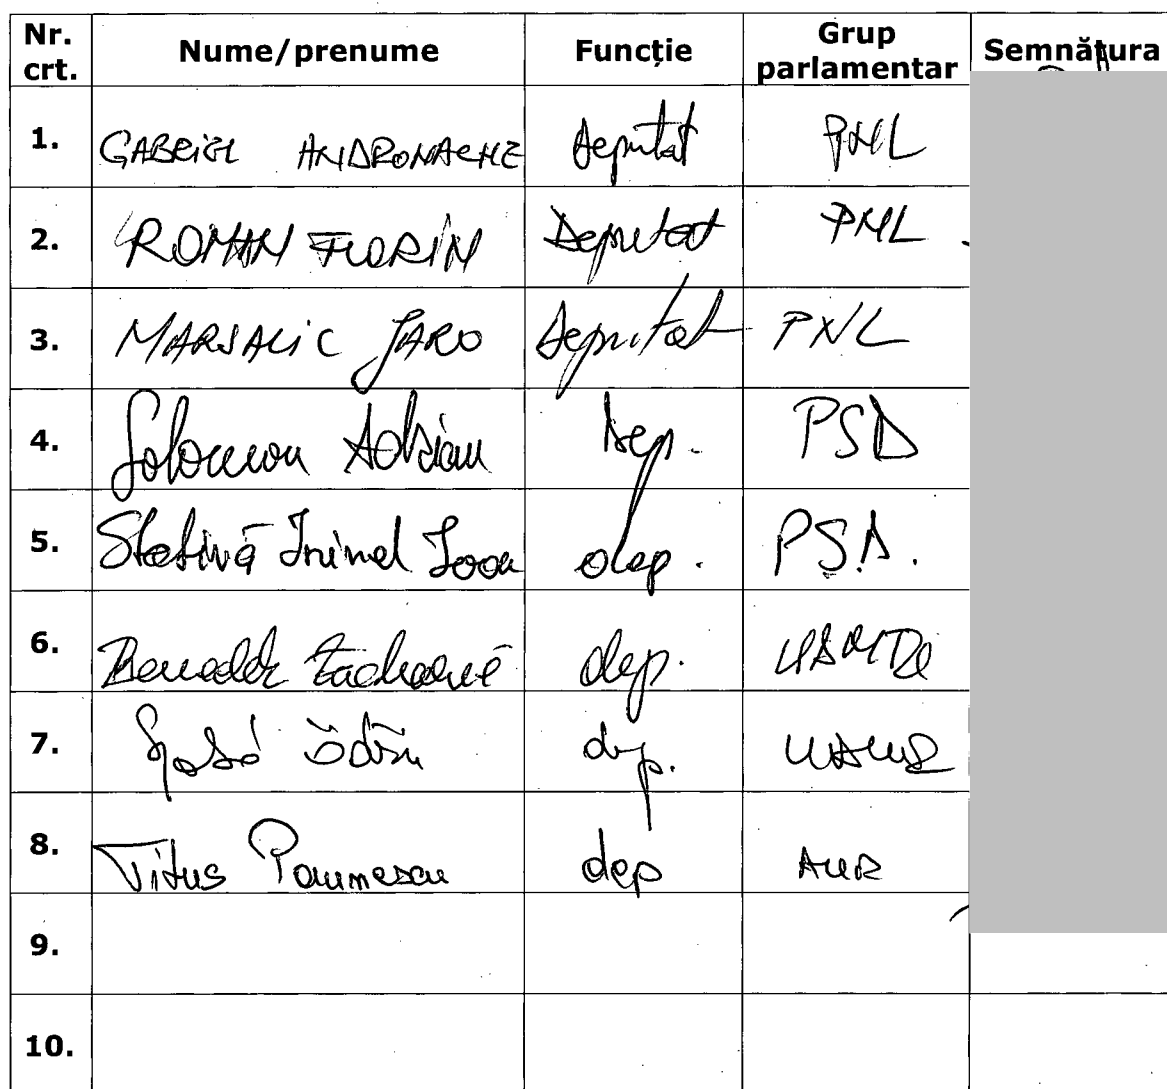 Nr. crt. Nume/prenume Funcție Grup parlamentar Semnătura
1. GABRIEL ANDRONACHE Deputat PNL
2. ROMAN FLORIN Deputat PNL
3. MARȘALIC JARO Deputat PNL
4. Solomon Adrian Dep. PSD
5. Stativă Irinel Ioan dep. PSD.
6. Benedek Zacharie dep. UDMR
7. dep. UDMR
8. Titus Paunescu dep AUR
9.
10.